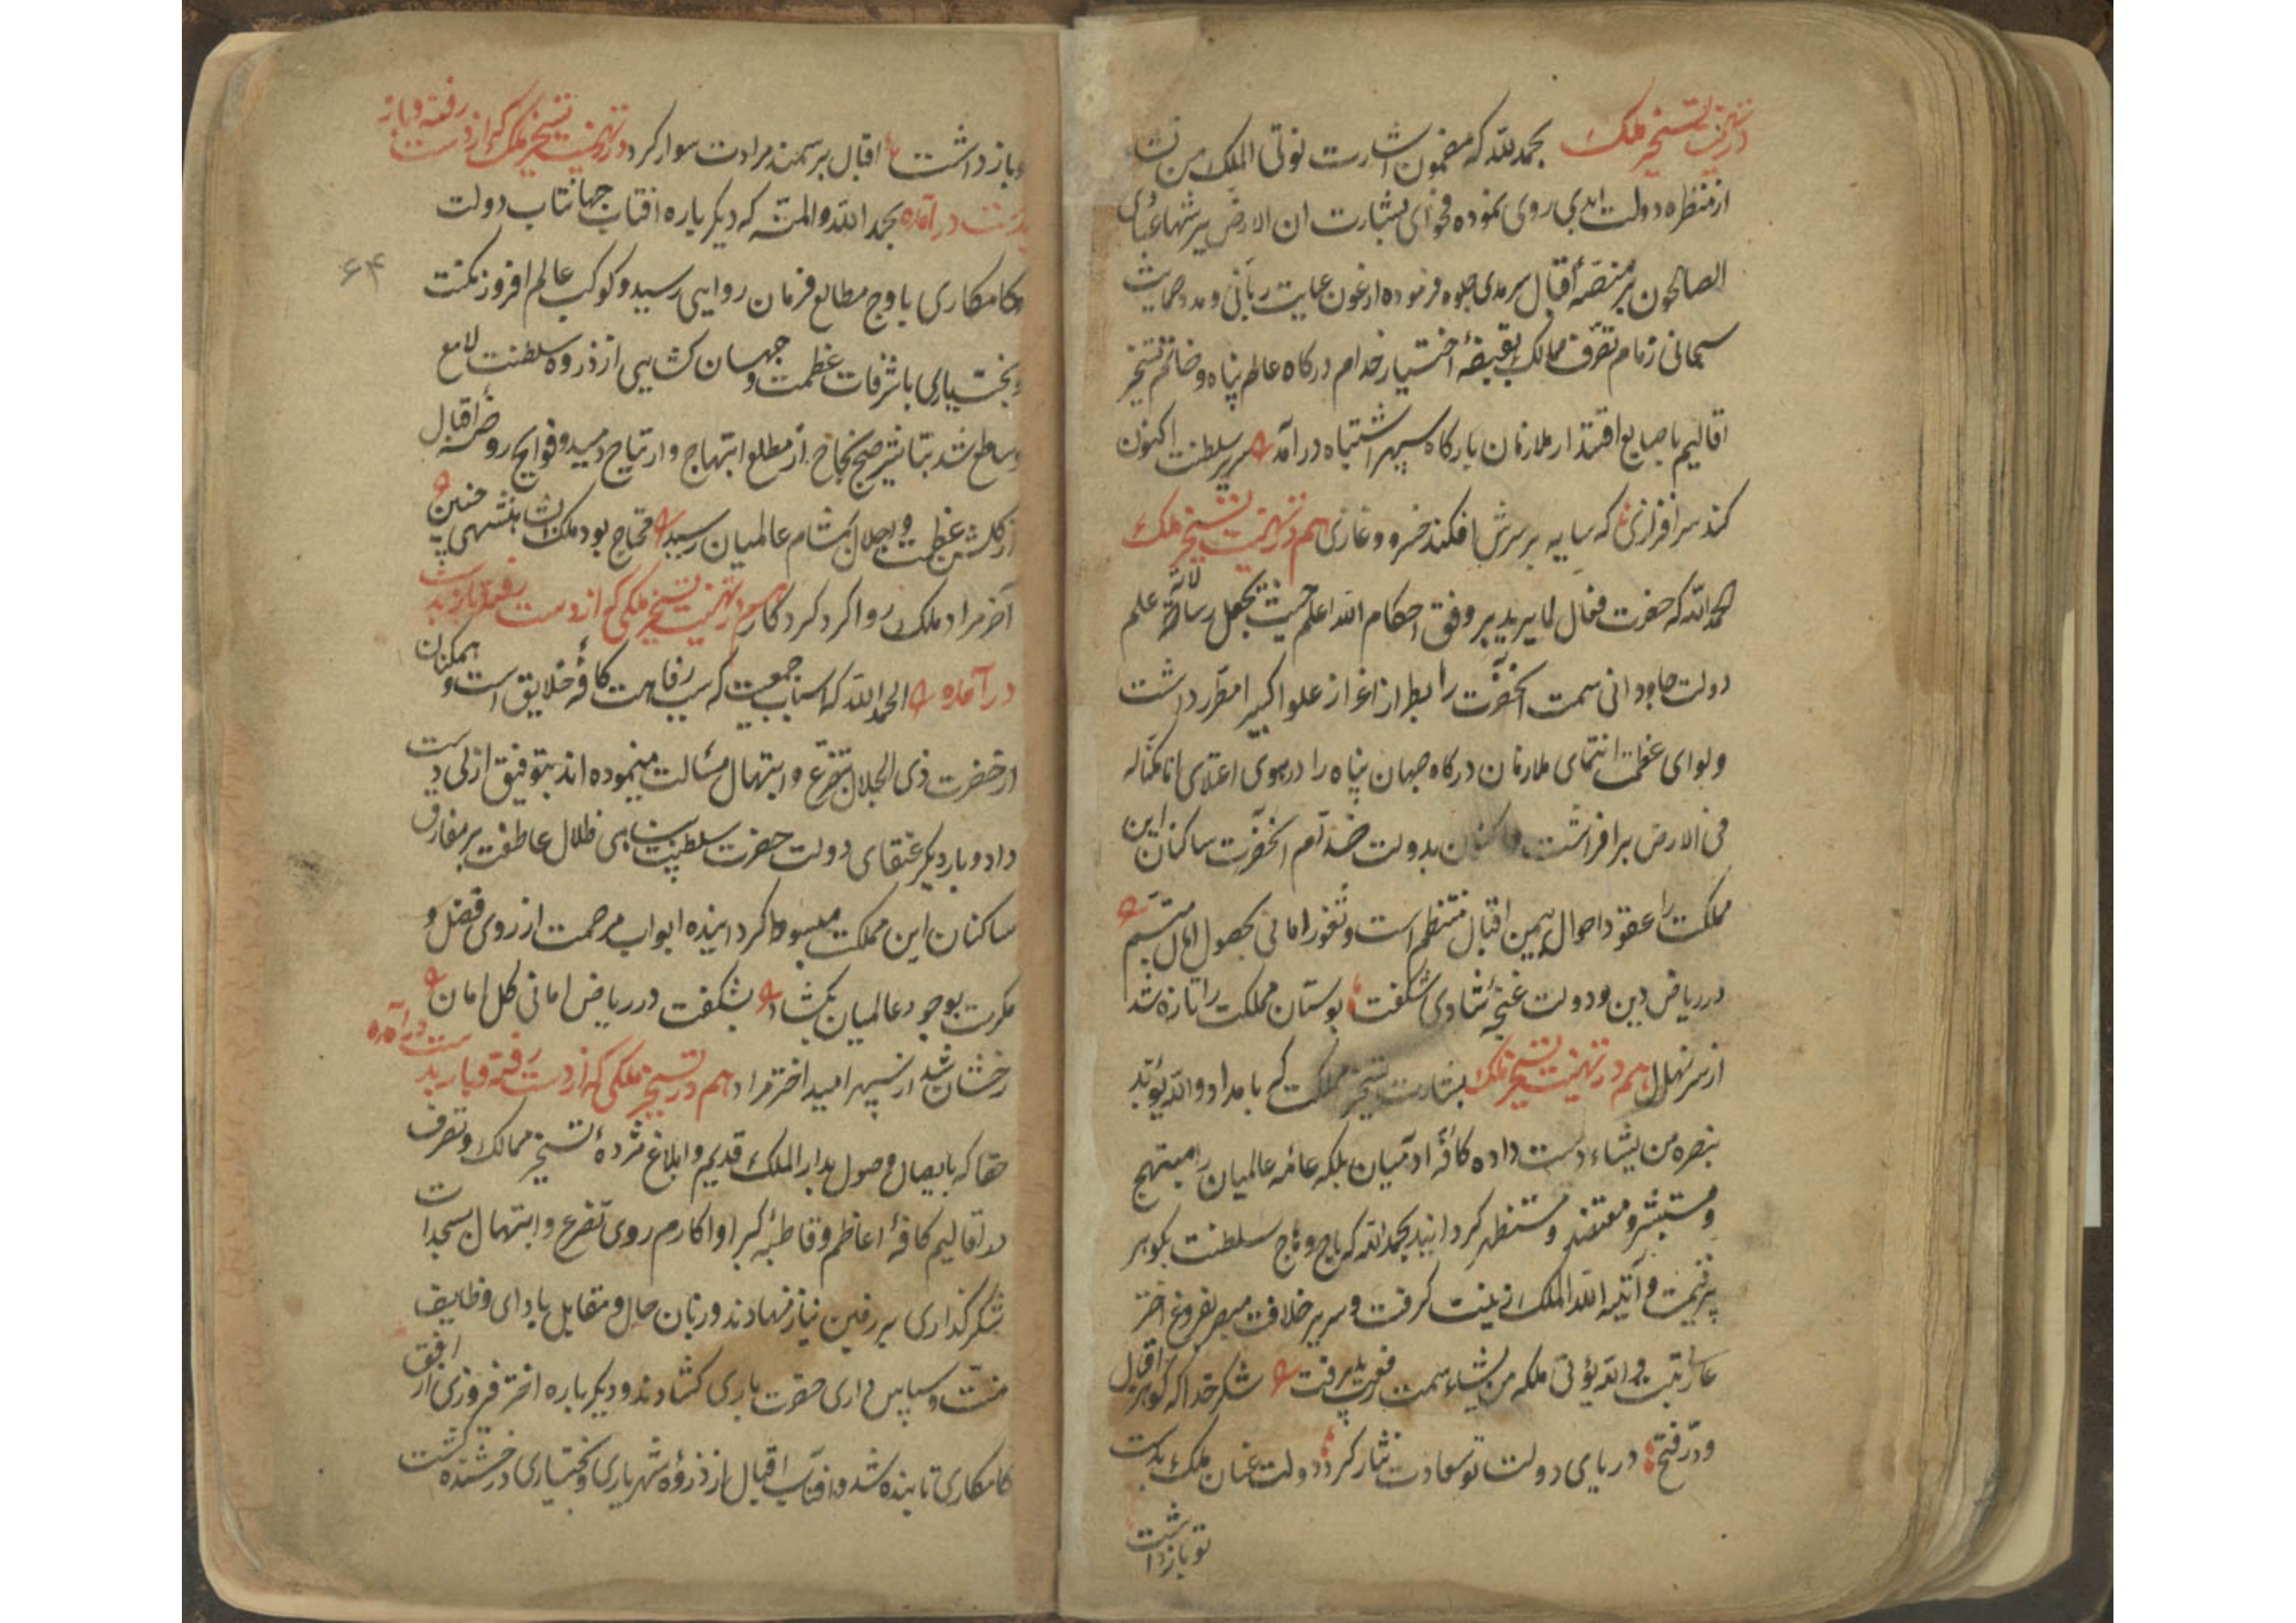 در تهنیت تسخیر ملک بحمد لله که مضمون اشارت توتی الملک من تشا
از منظره دولت ابدی روی نموده فحوای بشارت ان الارض یرثها عبادی
الصالحون بر منصّهٔ اقبال سرمدی جلوه فرموده از عون عنایت ربانی و مدد حمایت
سبحانی زمام تصرف ممالک بقبضهٔ اختیار خدام درکاه عالم پناه و خاتم تسخیر
اقالیم باصابع اقتدار ملازمان بارکاه سپهر اشتباه درآمد سریر سلطنت اکنون
کند سرافرازی که سایه بر سرش افکند خسرو غازی هم در تهنیت تسخیر ملک
الحمد لله که حضرت فعال لما یرید بر وفق احکام الله اعلم حیث یجعل رسالاته علم
دولت جاودانی سمت آنحضرت را بطراز اعزاز علوا کبیرا مطرز داشت
و لوای عظمت انتمای ملازمان درکاه جهان پناه را در هوی اعتلای انا مکنا له
فی الارض برافراشت و اکنون بدولت خدام آنحضرت ساکنان این
مملکت را عقود احوال بیمن اقبال منتظم است و ثغور امانی بحصول امال متبسم
در ریاض دین و دولت غنچهٔ شادی شکفت بوستان مملکت را تازه شد
از سر نهال هم در تهنیت تسخیر ملک بشارت تسخیر مملکت که بامداد والله یوید
بنصره من یشاء دست داده کافهٔ آدمیان بلکه عامه عالمیان را مبتهج
و مستبشر و معتضد و مستظهر کردانید بحمد الله که تاج و تاج سلطنت بکوهر
پرقیمت و آتیه الله الملک زینت کرفت و سریر خلافت مصیر بفروغ اختر
عالی رتبت والله یؤتی ملکه من یشاء سمت رفعت پذیرفت شکر خدا که کوهر اقبال
و درّ فتح دریای دولت تو سعادت نثار کرد دولت عنان ملک بدست
تو باز داشت
و باز داشت اقبال بر سمند مرادت سوار کرد در تهنیت تسخیر ملک که از دست رفته و باز
بدست درآمده بحمد الله والمنه که دیکر باره افتاب جهانتاب دولت
و کامکاری باوج مطالع فرمان روایی رسید و کوکب عالم افروز مکنت
۶۴
و بختیاری باشرفات عظمت و جهان کشایی از ذروه سلطنت لامع
و ساطع شد تباشیر صبح نجاح از مطلع ابتهاج و ارتیاح دمید و فوایح روضهٔ اقبال
از کلشن عظمت و اجلال بمشام عالمیان رسید محتاج بود ملک بشاهنشهی چنین
آخر مراد ملک روا کرد کردکار هم در تهنیت تسخیر ملکی که از دست رفته و باز بدست
درآمده الحمد الله که اسباب جمعیت که سبب رفاهت کافهٔ خلایق است و همکنان
از حضرت ذی الجلال بتضرع و ابتهال مسالت مینموده اند بتوفیق ازلی دست
داد و بار دیکر عنقای دولت حضرت سلطنت پناهی ظلال عاطفت بر مفارق
ساکنان این مملکت مبسوط کردانیده ابواب مرحمت از روی فضل و
مکرمت بوجود عالمیان بکشاد بشکفت در ریاض امانی کل امان
رخشان شد از سپهر امید اختر مراد هم در تسخیر ملکی که از دست رفته و باز بدست درآمده
حقا که بایصال وصول بدار الملک قدیم و ابلاغ مژدهٔ تسخیر ممالک و تصرف
در اقالیم کافهٔ اعاظم و قاطبهٔ کبرا و اکارم روی تضرع و ابتهال بسجدات
شکرکذاری بر زمین نیاز نهادند و زبان حال و مقابل بادای وظایف
منت و سپاس داری حضرت باری کشادند و دیکر باره اختر فیروزی از افق
کامکاری تابنده شد و افتاب اقبال از ذروهٔ شهریاری و بختیاری درخشنده کشت